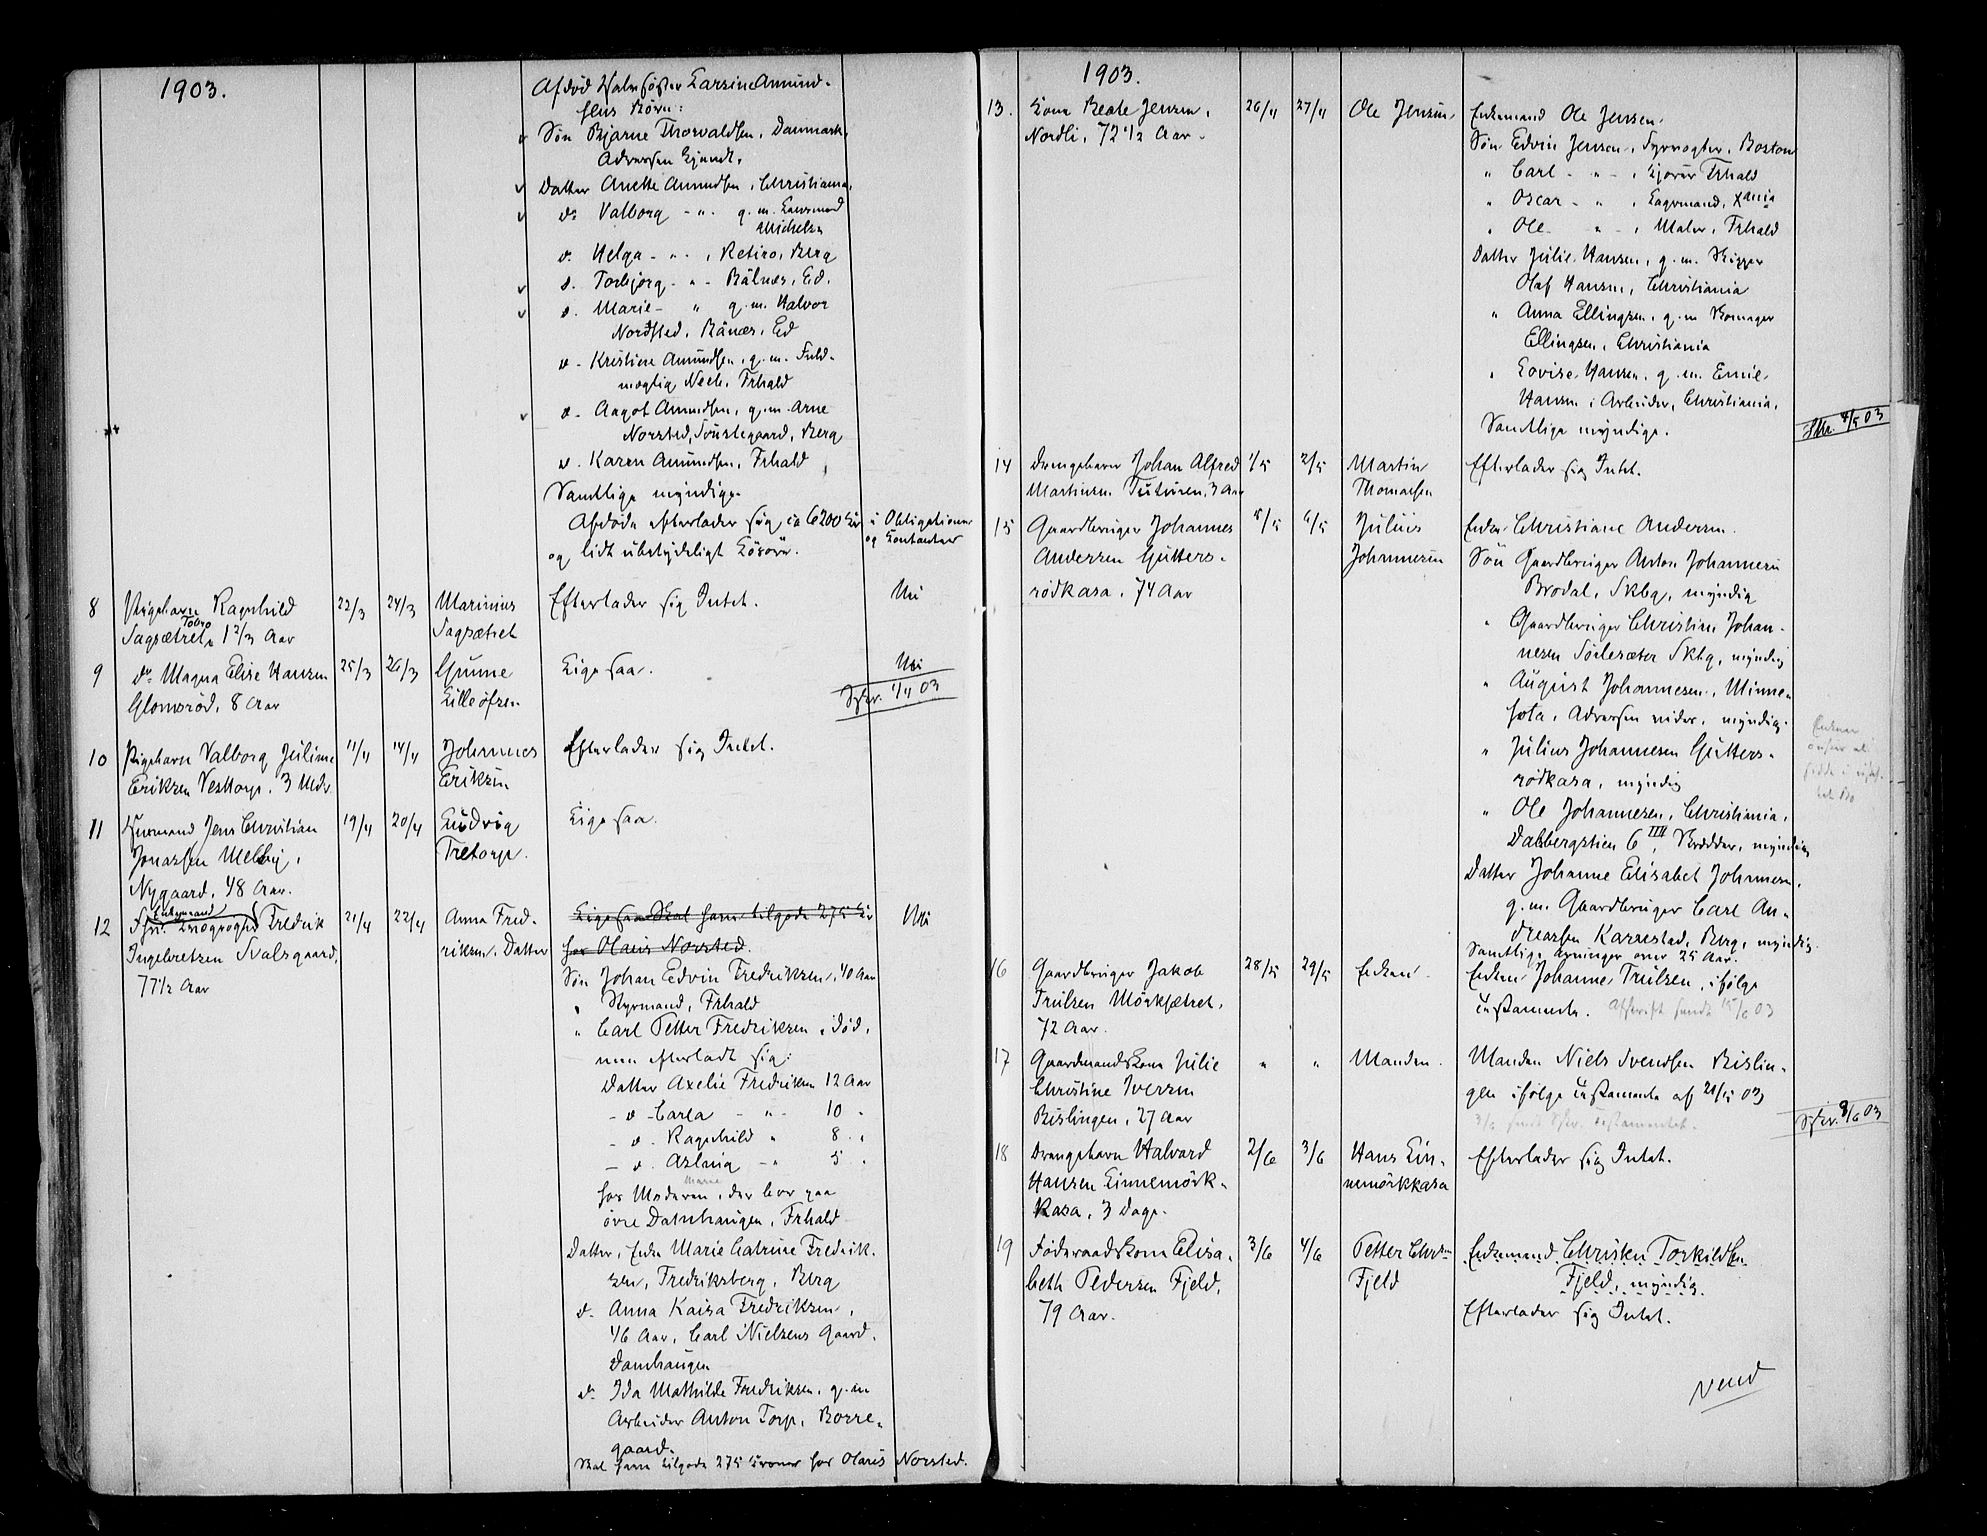 1903.
Afdød Halvsøster Larsine Amund-
sens Børn:
Søn Bjarne Thorvaldsen, Danmark,
Adressen ukjendt.
Datter Anette Amundsen, Christiania,
do Valborg - " - g. m. Lensmand
Michelsen
d. Helga - " - , Retiro, Berg
d. Torbjørg - " - Bälnæs, Ed.
d. Marie - " g. m. Halvor
Nordsted, Bänæs, Ed
d. Kristine Amundsen, g. m. Fuld-
mægtig Neeb, Frhald
d. Aagot Amundsen, g. m. Arne
Norsted, Berg
d. Karen Amundsen, Frhald
Samtlige myndige.
Afdøde efterlader sig ca 6200 Kr i Obligationer
og Kontanter
og lidt ubetydeligt Løsøre.
8 Pigebarn Ragnhild 22/3 24/3 Marinius Efterlader sig Intet.
Sagsætret, 1 2/3 Aar Sagsætret
9 do Magna Elise Hansen 25/3 26/3 Gunne Ligesaa.
Glomsrød, 8 Aar Lilleøfsen
Skr. 1/4 03
10 Pigebarn Valborg Juline 11/4 14/4 Johannes Efterlader sig Intet.
Eriksen Vestorp. 3 Mdr Eriksen
11 Husmand Jens Christian 19/4 20/4 Ludvig Ligesaa.
Jonassen Melby, Tretorp.
Nygaard, 48 Aar.
Enkemand
12 Fhv. Fredrik 21/4 22/4 Anna Fred- Ligesaa Skal have tilgode 275 Kr
Ingebretsen Svalsgaard, riksen, Datter hos Olaus Norsted.
77 1/2 Aar
Søn Johan Edvin Fredriksen, 40 Aar
Styrmand, Frhald
" Carl Petter Fredriksen, død,
men efterladt sig:
Datter Axelie Fredriksen 12 Aar
- d - Carla - " - 10 "
- d. Ragnhild " 8 "
- d. Aslaug - " 5 "
Marie
hos Moderen, der bor paa
øvre Damhaugen, Frhald
Datter, Enke Marie Catrine Fredrik-
sen, Fredriksberg, Berg
d. Anna Kaisa Fredriksen,
46 Aar, Carl Nielsens Gaard,
Damhaugen
d. Ida Mathilde Fredriksen, g. m
Arbeider Anton Torp, Borre-
gaard.
Skal have tilgode 275 Kroner hos Olaus Norsted.
1903.
13. Kone Beate Jensen, 26/4 27/4 Ole Jensen, Enkemand Ole Jensen.
Nordli, 72 1/2 Aar.
Søn Edvin Jensen, Fyrvogter, Boston
" Carl - " - , Kjører Frhald
" Oscar - " , Lagermand, Xania
" Ole - " - , Maler, Frhald
Datter Julie Hansen, g. m. Skipper
Olaf Hansen, Christiania
" Anna Ellingsen, g. m
Ellingsen, Christiania
" Lovise Hansen, g. m. Emil
Hansen, Arbeider, Christiania.
Samtlige myndige.
Skr. 4/5 03
14 Drengebarn Johan Alfred 1/5 2/5 Martin Efterlader sig Intet.
Martinsen, 3 Aar Thomassen
15 Gaardbruger Johannes 5/5 6/5 Julius Enke Christiane Andersen.
Andersen Gutters- Johannesen
rødkasa, 74 Aar
Søn Gaardbruger Anton Johannesen
Brodal, Skbg, myndig
" Gaardbruger Christian Johan-
nesen Sørlesæter Skbg, myndig
" August Johannesen, Minne-
sota, Adressen vides, myndig.
" Julius Johannesen Gutters-
rødkasa, myndig
" Ole Johannesen, Christiania,
Dalsbergstien 6 III, myndig
Datter Johanne Elisabet Johannesen,
g. m. Gaardbruger Carl An-
dreassen Karrestad, Berg, myndig.
Samtlige Arvinger over 25 Aar.
Enken
ønsker at
sidde i uskif-
tet Bo
16 Gaardbruger Jakob 28/5 29/5 Enken. Enken Johanne Trulsen, ifølge
Trulsen Mørksætret, Testamente. Afskrift sendt 15/6 03
72 Aar.
17 Gaardmandskone Julie " " Manden. Manden Niels Svendsen Bislin-
Christine Iversen gen ifølge Testamente af 21/5 03
Bislingen, 27 Aar
3/6 sendt Skr. Testamentet.
Skr. 9/6 03
18 Drengebarn Halvard 2/6 3/6 Hans Lin- Efterlader sig Intet.
Hansen Linnemørk- nemørkkasa
kasa, 3 Dage.
19 Føderaadskone Elisa- 3/6 4/6 Petter Chrsn Enkemand Christen Torkildsen
beth Pedersen Fjeld, Fjeld Fjeld, myndig.
79 Aar. Efterlader sig Intet.
Vend